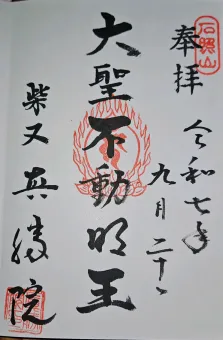 奉拝
石照山
令和七年
九月二十一
大聖不動明王
柴又真勝院